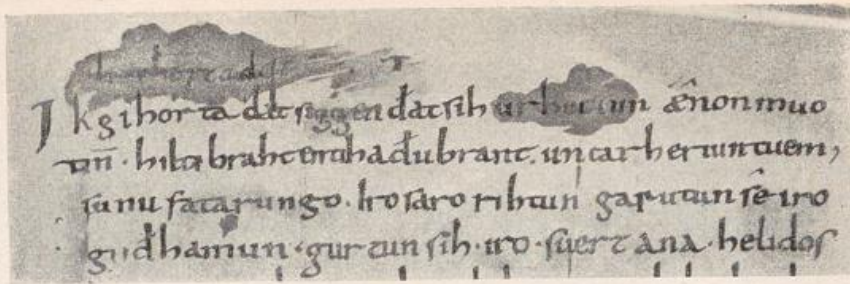 Ik gihorta đat seggen đat sih urhettun ænon muo
tin · hiltibraht enti hađubrant · untar heriun tuem,
sunu fatarungo · iro saro rihtun garutun sê iro
guđhamun · gurtun sih · iro · suert ana · helidos